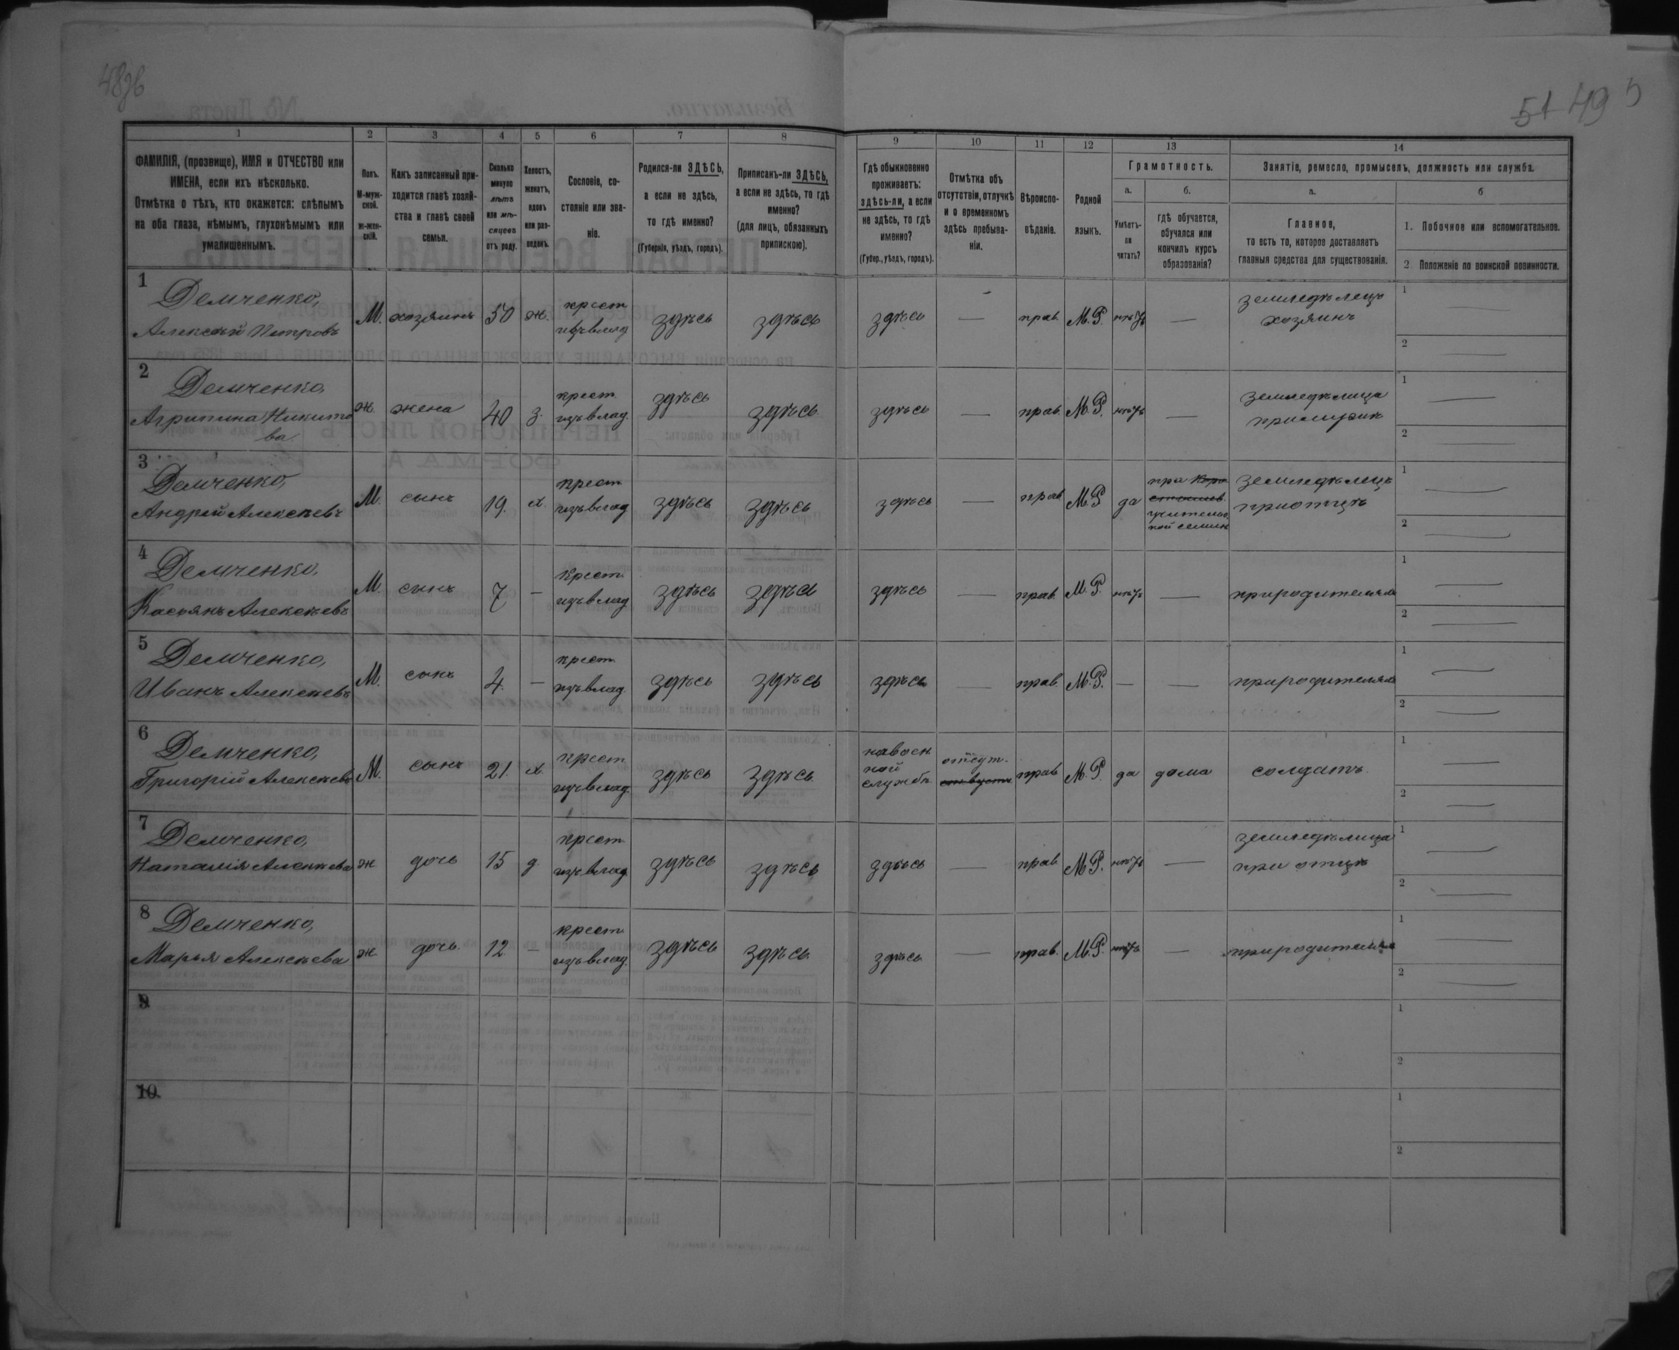 48об
51 49
1 2 3 4 5 6 7 8 9 10 11 12 13 14
ФАМИЛІЯ, (прозвище), ИМЯ и ОТЧЕСТВО или
ИМЕНА, если ихъ нѣсколько.
Отмѣтка о тѣхъ, кто окажется: слѣпымъ
на оба глаза, нѣмымъ, глухонѣмымъ или
умалишеннымъ.
Полъ.
М-муж-
ской.
Ж-жен-
скій.
Какъ записанный при-
ходится главѣ хозяй-
ства и главѣ своей
семьи.
Сколько
минуло
лѣтъ
или мѣ-
сяцевъ
отъ роду.
Холостъ,
женатъ,
вдовъ
или раз-
веденъ.
Сословіе, со-
стояніе или зва-
ніе.
Родился-ли ЗДѢСЬ,
а если не здѣсь,
то гдѣ именно?
(Губернія, уѣздъ, городъ).
Приписанъ-ли ЗДѢСЬ,
а если не здѣсь, то гдѣ
именно?
(для лицъ, обязанныхъ
припискою).
Гдѣ обыкновенно
проживаетъ:
здѣсь-ли, а если
не здѣсь, то гдѣ
именно?
(Губер., уѣздъ, городъ).
Отмѣтка объ
отсутствіи, отлучкѣ
и о временномъ
здѣсь пребыва-
ніи.
Вѣроиспо-
вѣданіе.
Родной
языкъ.
Грамотность.
а.
Умѣетъ-
ли
читать?
б.
гдѣ обучается,
обучался или
кончилъ курсъ
образованія?
Занятіе, ремесло, промыселъ, должность или служба.
а.
Главное,
то есть то, которое доставляетъ
главныя средства для существованія.
б
1. Побочное или вспомогательное.
2 Положеніе по воинской повинности.
1
Демченко,
Алексѣй Петровъ
М. хозяинъ 50 ж.
крест.
изъ влад
здѣсь здѣсь здѣсь — прав. М.Р. нѣтъ —
земледѣлецъ
хозяинъ
1 —
2 —
2
Демченко,
Агрипина Никито
ва
ж. жена 40 з.
крест.
изъ влад.
здѣсь здѣсь здѣсь — прав. М.Р. нѣтъ —
земледѣлица
при мужѣ
1 —
2 —
3
Демченко,
Андрей Алексѣевъ
М. сынъ 19. х.
крест
изъ влад
здѣсь здѣсь здѣсь — прав М.Р да
при
учительс
кой семин
земледѣлецъ
при отцѣ
1 —
2 —
4
Демченко,
Касьянъ Алексѣевъ
М. сынъ 7 —
крест.
изъ влад.
здѣсь здѣсь здѣсь — прав М.Р. нѣтъ — при родителяхъ
1 —
2 —
5
Демченко,
Иванъ Алексѣевъ
М. сынъ 4. —
крест
изъ влад.
здѣсь здѣсь здѣсь — прав. М.Р. — — при родителяхъ
1 —
2 —
6
Демченко,
Григорій Алексѣевъ
М. сынъ 21. х
крест
изъ влад.
здѣсь здѣсь
на воен
ной
службѣ
отсут.
прав М.Р да дома солдатъ.
1 —
2 —
7
Демченко,
Наталія Алексѣева
ж дочь 15 д
крест
изъ влад
здѣсь здѣсь здѣсь — прав М.Р. нѣтъ —
земледѣлица
при отцѣ
1 —
2 —
8
Демченко,
Марья Алексѣева
ж дочь. 12 —
крест
изъ влад
здѣсь здѣсь здѣсь — прав. М.Р. нѣтъ — при родителяхъ
1 —
2 —
9
1
2
10.
1
2